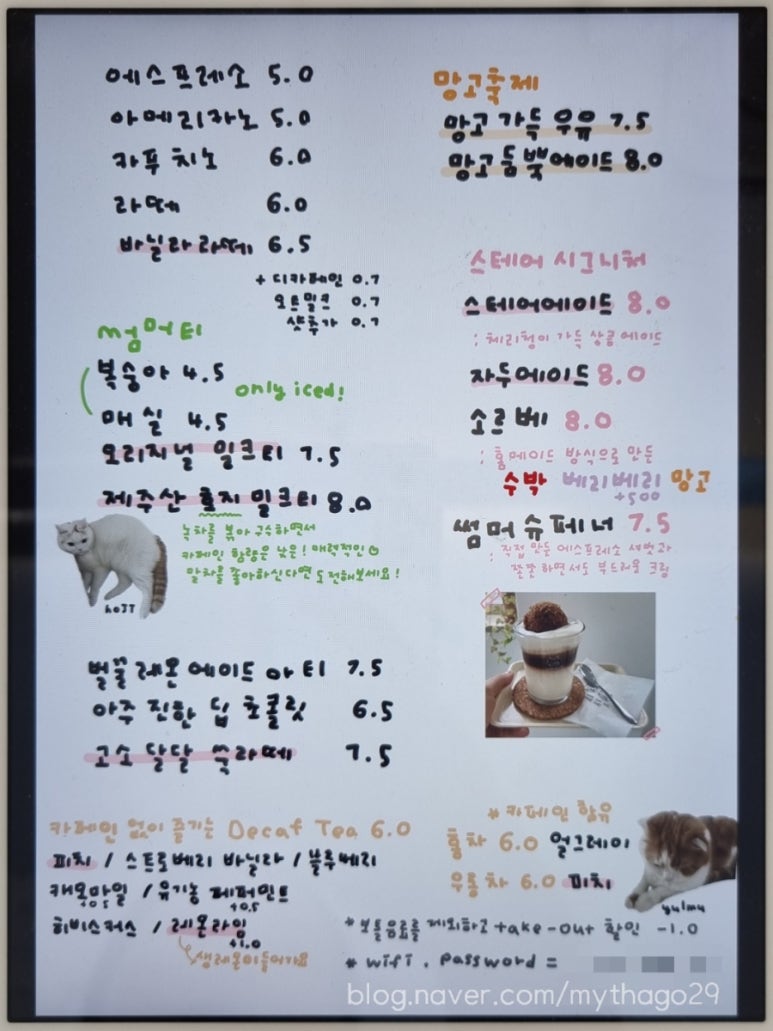 에스프레소 5.0
아메리카노 5.0
카푸치노 6.0
라떼 6.0
바닐라라떼 6.5
+ 디카페인 0.7
오트밀크 0.7
샷추가 0.7
썸머티
복숭아 4.5
only iced!
매실 4.5
오리지널 밀크티 7.5
제주산 호지 밀크티 8.0
녹차를 볶아 구수하면서
카페인 함량은 낮은! 매력적인
말차를 좋아하신다면 도전해보세요!
hoJJ
벌꿀레몬에이드 아티 7.5
아주 진한 딥 초콜릿 6.5
고소 달달 쑥라떼 7.5
카페인 없이 즐기는 Decaf Tea 6.0
피치 / 스트로베리 바닐라 / 블루베리
캐모마일 / 유기농 페퍼민트
+0.5 +0.5
히비스커스 / 레몬라임
+1.0
생레몬이들어가요
망고축제
망고가득우유 7.5
망고듬뿍에이드 8.0
스테어 시그니처
스테어에이드 8.0
: 체리청이 가득 상큼 에이드
자두에이드 8.0
소르베 8.0
: 홈메이드 방식으로 만든
수박 베리베리 망고
+500
썸머슈페너 7.5
: 직접 만든 에스프레소 샤벳과
쫀쫀하면서도 부드러운 크림
* 카페인 함유
홍차 6.0 얼그레이
우롱차 6.0 피치
yulmu
* 보틀음료를 제외하고 take-out 할인 -1.0
* wifi . password =
blog.naver.com/mythago29